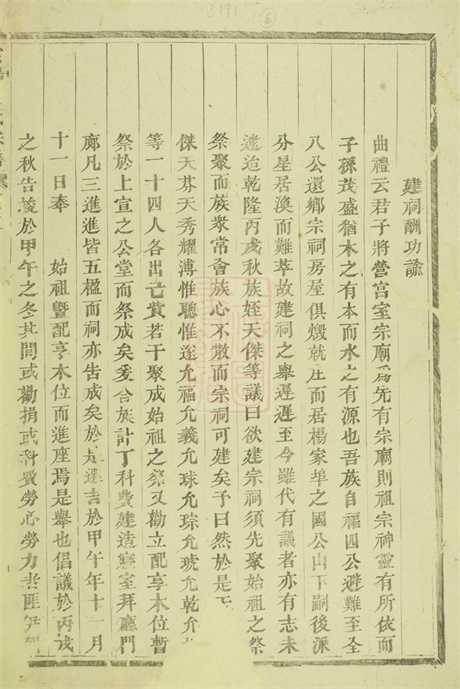 3191
建祠酬功論
曲禮云君子將營宮室宗廟為先有宗廟則祖宗神靈有所依而
子孫茂盛猶木之有本而水之有源也吾族自福四公避難至全
八公還鄉宗祠房屋俱燬就庄而居楊家埠之國公山下嗣後派
分星居渙而難萃故建祠之舉遲遲至今雖代有議者亦有志未
逮迨乾隆丙戌秋族姪天傑等議曰欲建宗祠須先聚始祖之祭
祭聚而族眾常會族心不散而宗祠可建矣予曰然於是
傑天芬天秀耀溥惟聰惟遂允福允義允球允琮允琥允乾允
等一十四人各出己貲若干聚成始祖之祭又勸立配享木位暫
祭於上宣之公堂而祭成矣爰合族計丁科費建造寢室拜廳門
廊凡三進進皆五楹而祠亦告成矣於是選吉於甲午年十一月
十一日奉 始祖暨配亨木位而進座焉是舉也倡議於丙戌
之秋告竣於甲午之冬其間或勸捐或科費勞心勞力者匪伊